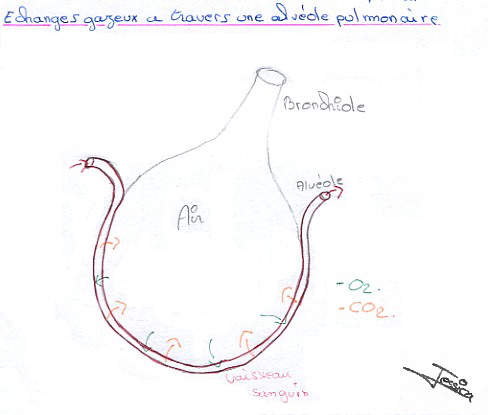 Echanges gazeux a travers une alvéole pulmonaire.
Bronchiole
Alvéole
Air
-O2.
-CO2.
Vaisseau
sanguin
Jessica